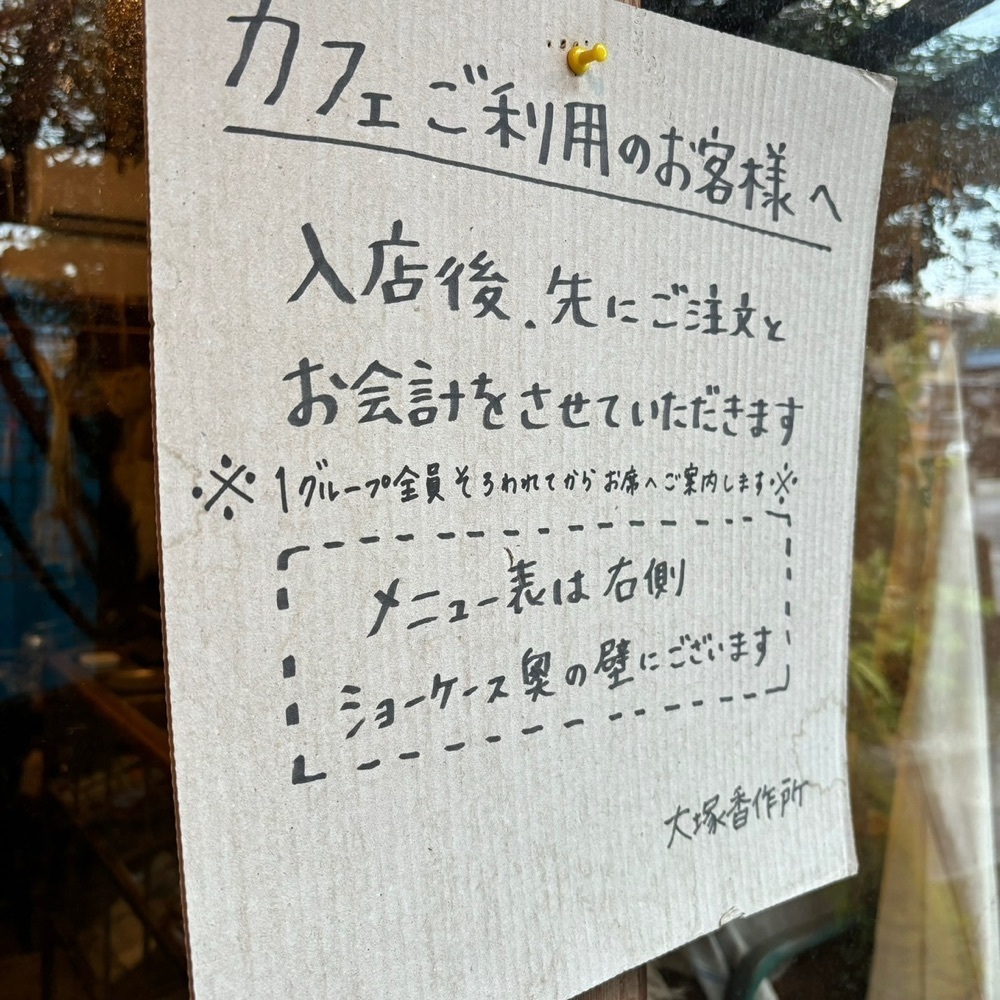 カフェご利用のお客様へ
入店後、先にご注文と
お会計をさせていただきます
※1グループ全員そろわれてからお席へご案内します※
メニュー表は右側
ショーケース奥の壁にございます
大塚香作所